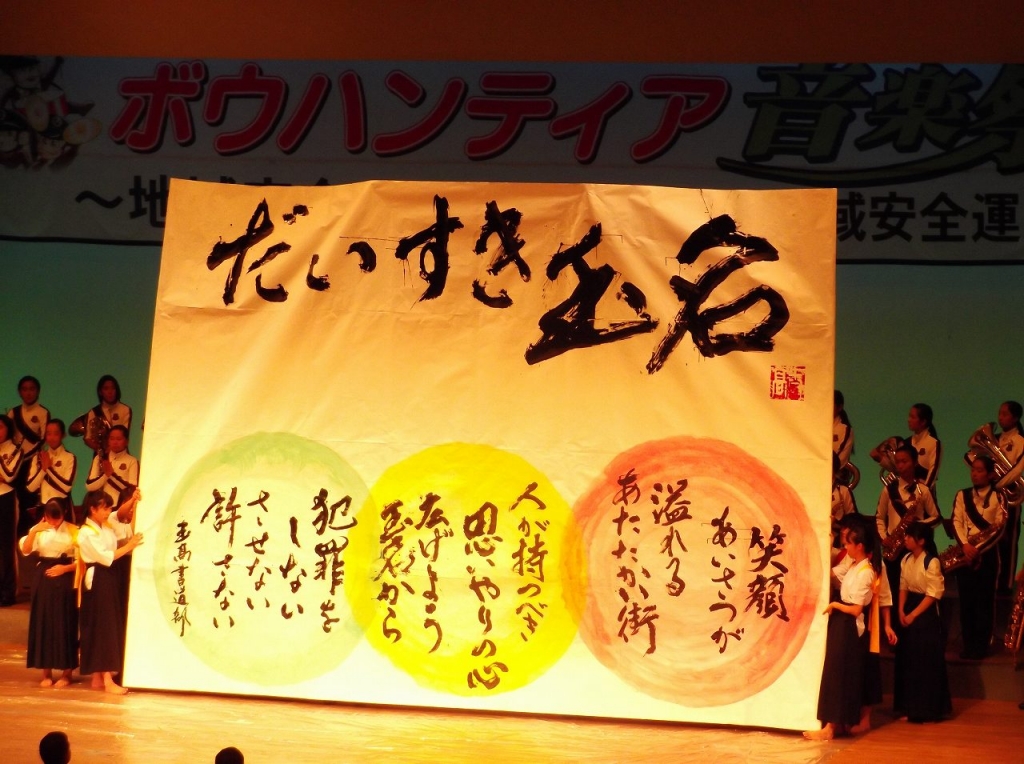 ボウハンティア音楽祭
～地域安全
域安全運
だいすき玉名
笑顔
あいさつが
溢れる
あたたかい街
人が持つべき
思いやりの心
広げよう
玉名から
犯罪を
しない
させない
許さない
玉高書道部